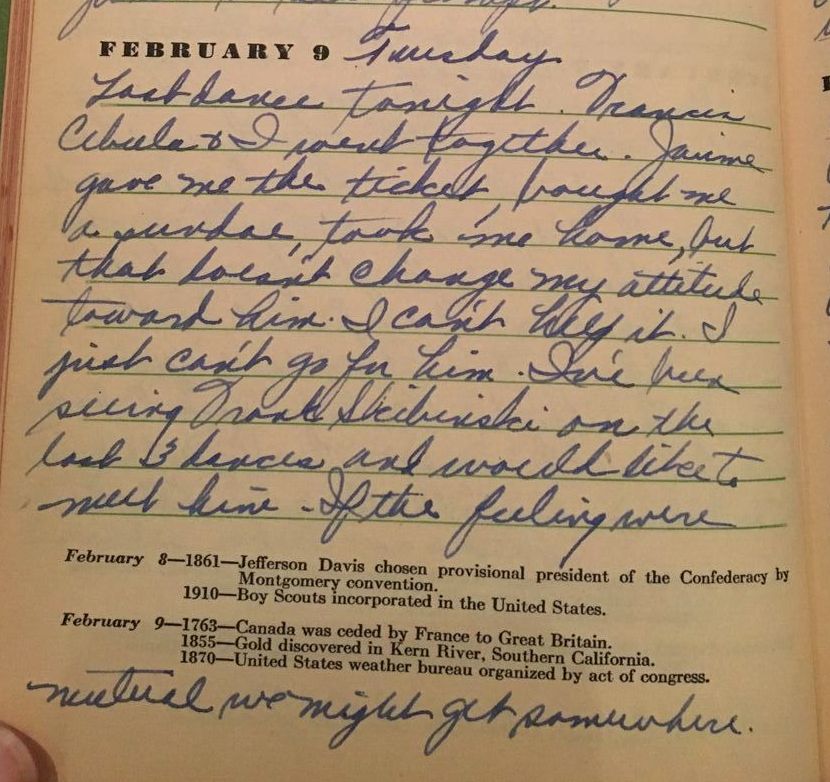 FEBRUARY 9 Tuesday
Last dance tonight. Francis
Cibula & I went together. Jaime
gave me the ticket, bought me
a sundae, took me home, but
that doesn't change my attitude
toward him. I can't help it. I
just can't go for him. I've been
seeing Frank Skibinski on the
last 3 dances and would like to
meet him. If the feeling were
February 8—1861—Jefferson Davis chosen provisional president of the Confederacy by
Montgomery convention.
1910—Boy Scouts incorporated in the United States.
February 9—1763—Canada was ceded by France to Great Britain.
1855—Gold discovered in Kern River, Southern California.
1870—United States weather bureau organized by act of congress.
mutual we might get somewhere.